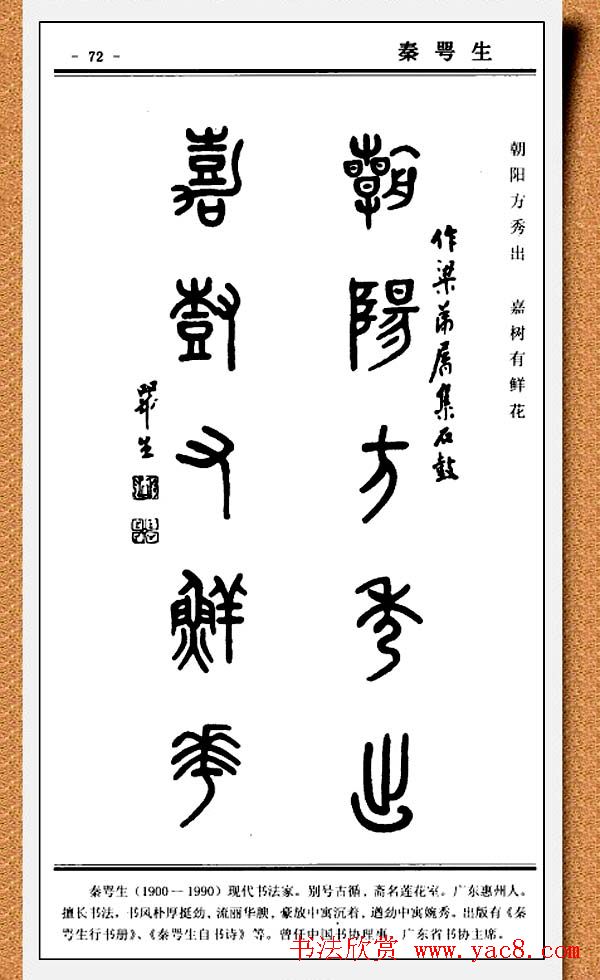 - 72 -
秦咢生
朝阳方秀出 嘉树有鲜花
作梁弟属集石鼓
朝陽方秀出
嘉尌又鱻花
咢生
秦咢生(1900—1990)现代书法家。别号古循,斋名莲花室。广东惠州人。
擅长书法,书风朴厚挺劲,流丽华腴,豪放中寓沉着,遒劲中寓婉秀。出版有《秦
咢生行书册》、《秦咢生自书诗》等。曾任中国书协理事,广东省书协主席。
书法欣赏 www.yac8.com